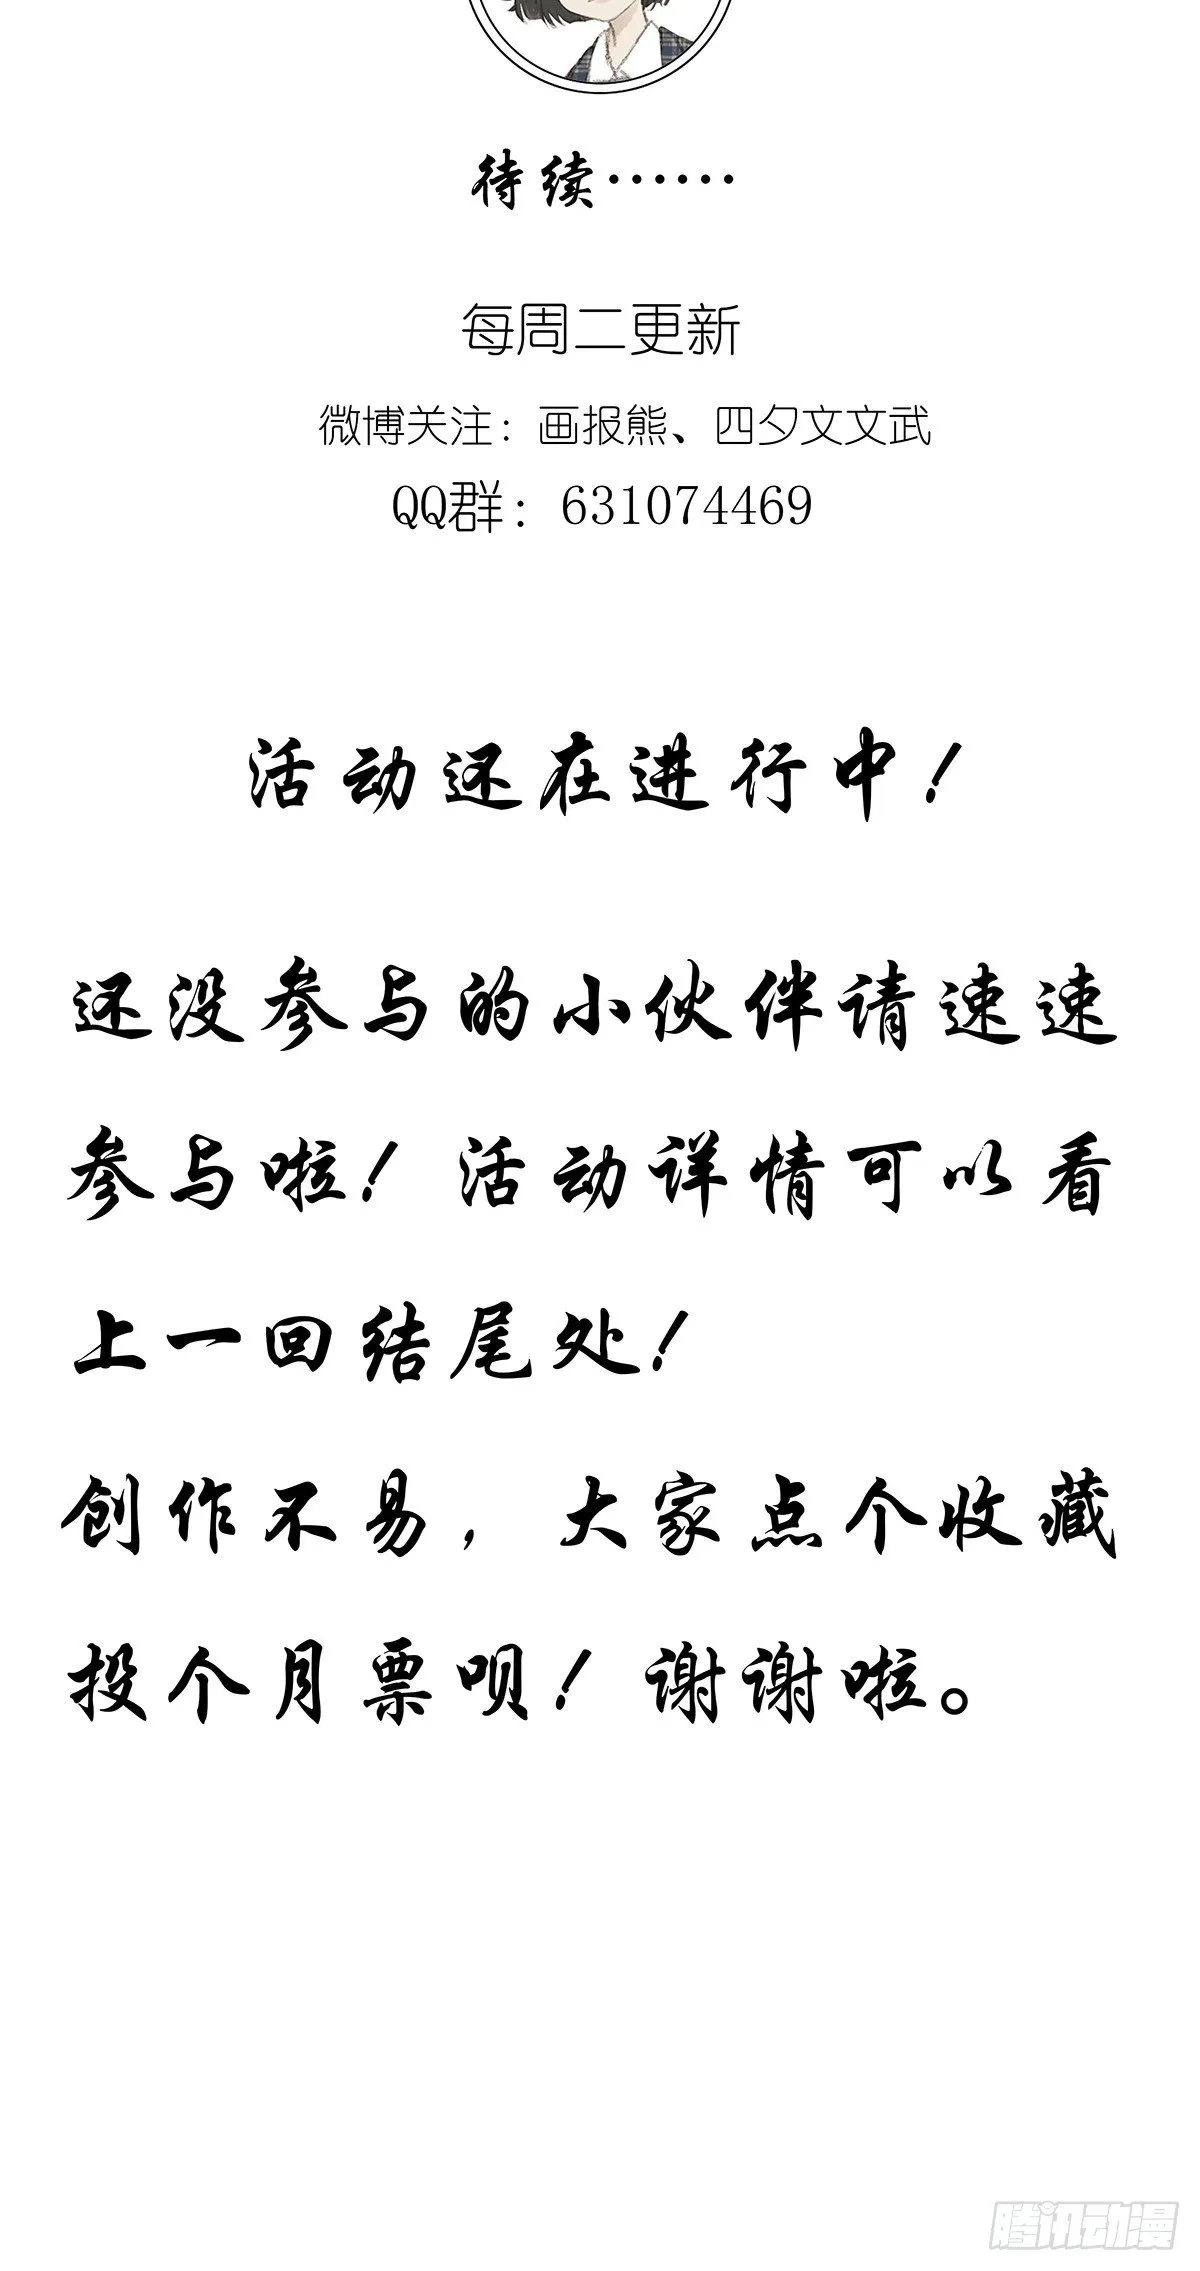 待续……
每周二更新
微博关注：画报熊、四夕文文武
QQ群：631074469
活动还在进行中！
还没参与的小伙伴请速速
参与啦！活动详情可以看
上一回结尾处！
创作不易，大家点个收藏
投个月票呗！谢谢啦。
腾讯动漫